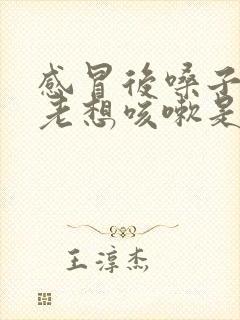 感冒後嗓子
老想咳嗽是
王淳杰